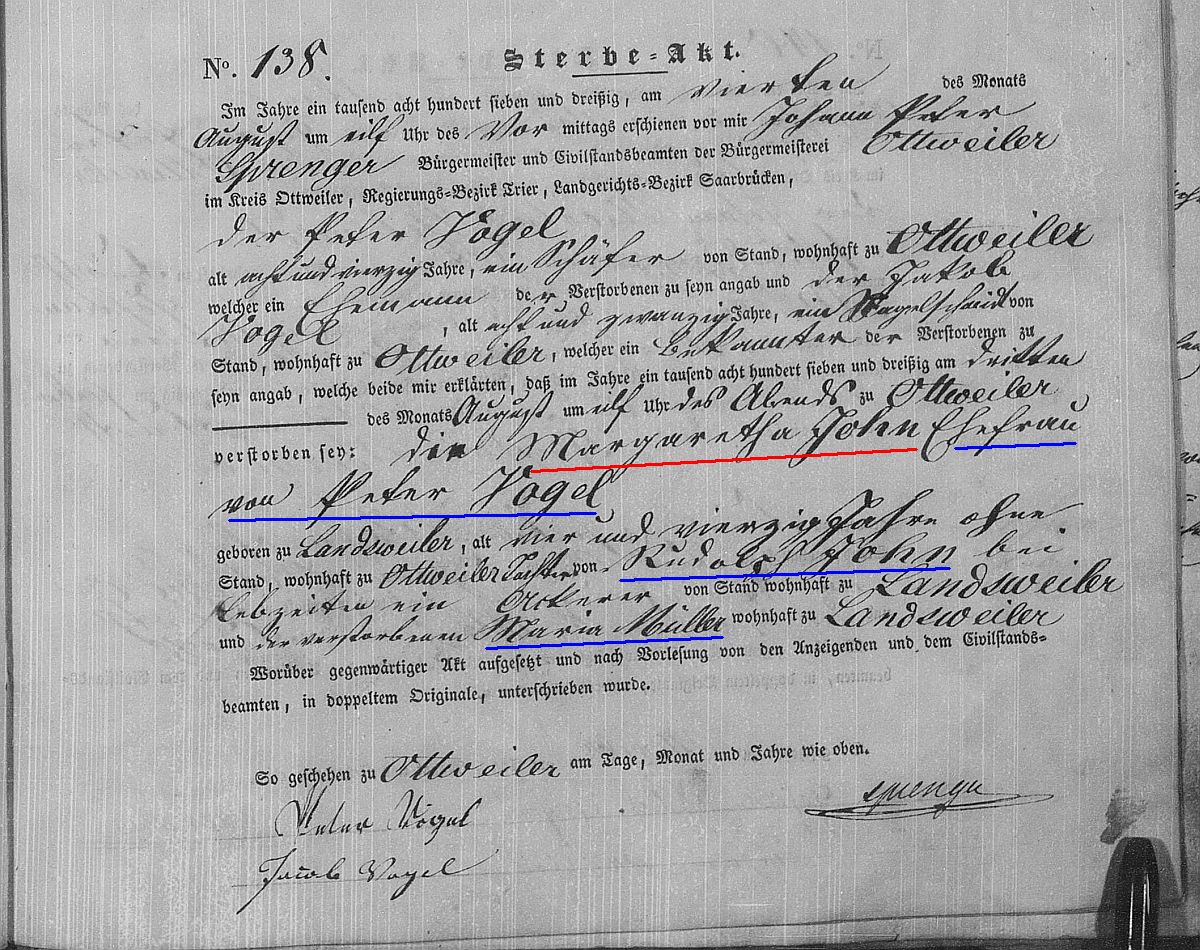 No. 138. Sterbe=Akt.
Im Jahre ein tausend acht hundert sieben und dreißig, am vierten des Monats
August um eilf Uhr des Vor mittags erschienen vor mir Johann Peter
Sprenger Bürgermeister und Civilstandsbeamten der Bürgermeisterei Ottweiler
im Kreis Ottweiler, Regierungs=Bezirk Trier, Landgerichts=Bezirk Saarbrücken,
der Peter Vogel
alt acht und vierzig Jahre, ein Schäfer von Stand, wohnhaft zu Ottweiler
welcher ein Ehemann der Verstorbenen zu seyn angab und der Jakob
Vogel, alt acht und zwanzig Jahre, ein Nagelschmidt von
Stand, wohnhaft zu Ottweiler, welcher ein Bekannter der Verstorbenen zu
seyn angab, welche beide mir erklärten, daß im Jahre ein tausend acht hundert sieben und dreißig am dritten
des Monats August um eilf Uhr des Abends zu Ottweiler
verstorben sey: die Margaretha John Ehefrau
von Peter Vogel
geboren zu Landsweiler, alt vier und vierzig Jahre ohne
Stand, wohnhaft zu Ottweiler Tochter von Rudolph John bei
Lebzeiten ein Ackerer von Stand wohnhaft zu Landsweiler
und der verstorbenen Maria Müller wohnhaft zu Landsweiler
Worüber gegenwärtiger Akt aufgesetzt und nach Vorlesung von den Anzeigenden und dem Civilstands=
beamten, in doppeltem Originale, unterschrieben wurde.
So geschehen zu Ottweiler am Tage, Monat und Jahre wie oben.
Peter Vogel Sprenger
Jacob Vogel